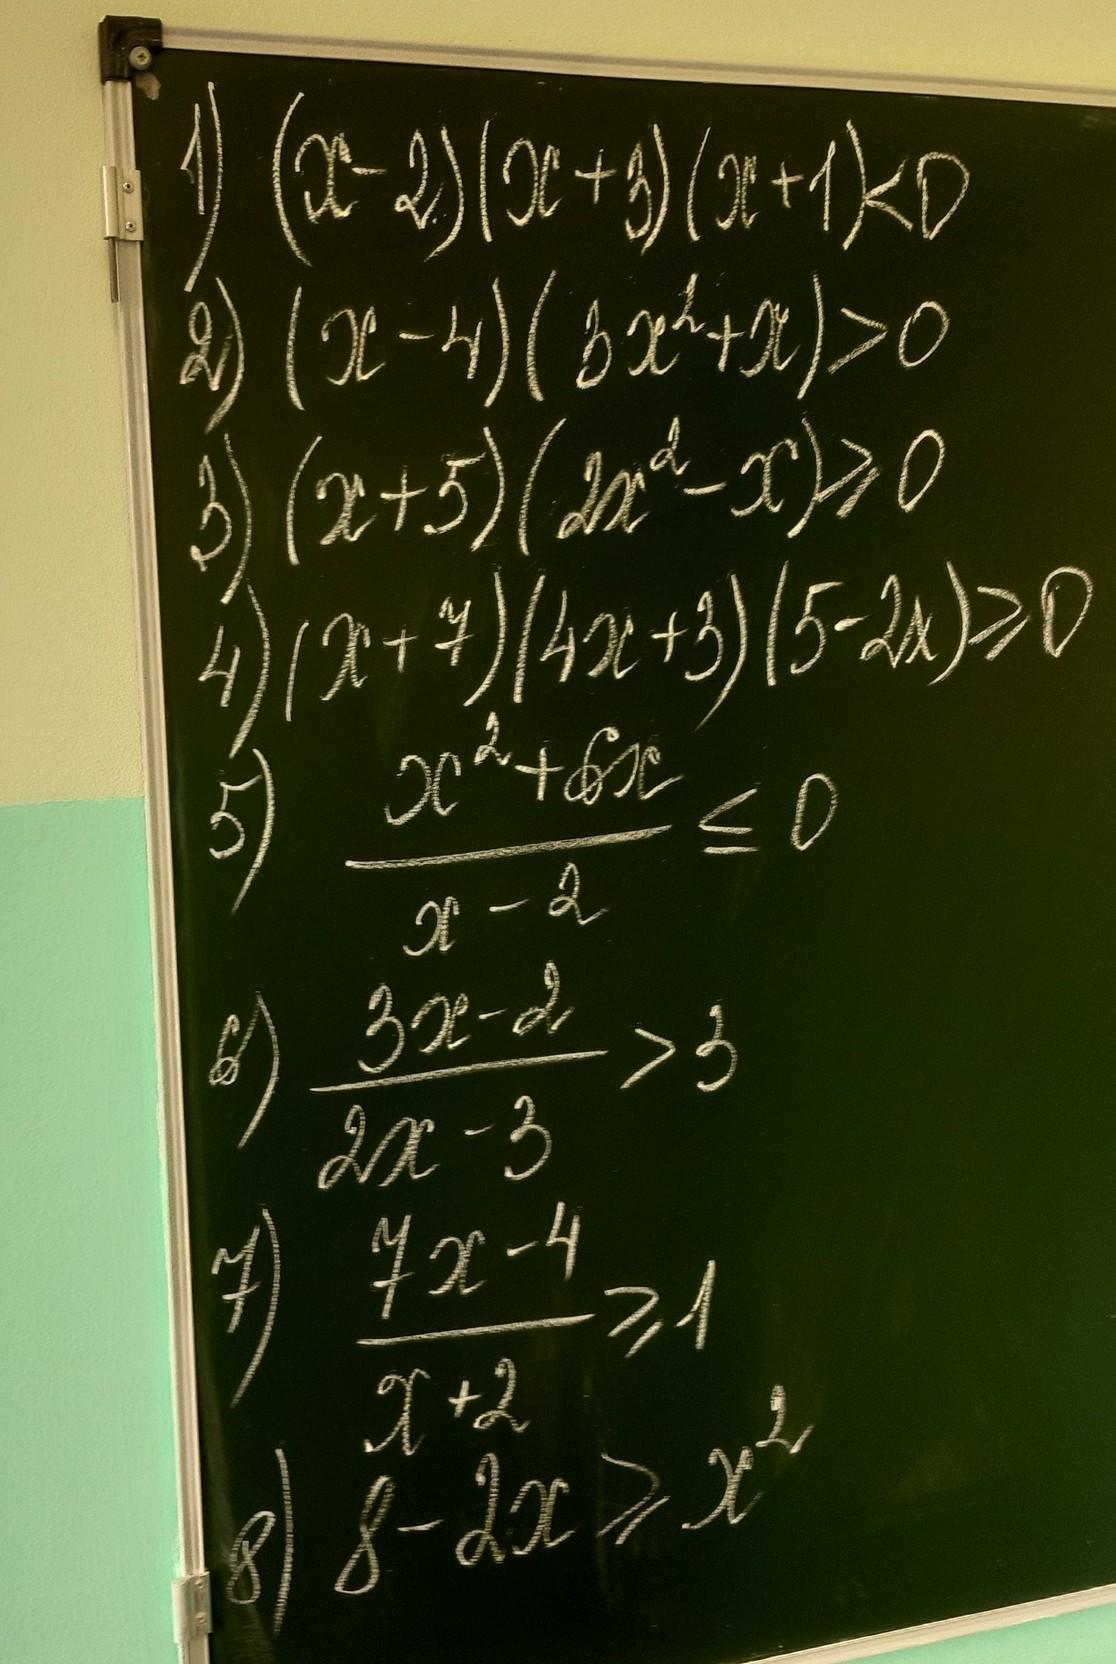 1) (x-2)(x+3)(x+1)<0
2) (x-4)(3x²+x)>0
3) (x+5)(2x²-x)⩾0
4) (x+7)(4x+3)(5-2x)⩾0
5) (x²+6x)/(x-2) ≤ 0
6) (3x-2)/(2x-3) > 3
7) (7x-4)/(x+2) ⩾ 1
8) 8-2x ⩾ x²